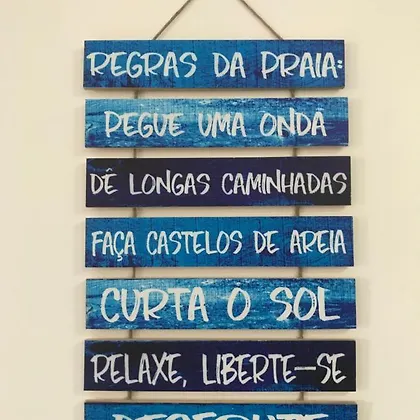 REGRAS DA PRAIA:
PEGUE UMA ONDA
DÊ LONGAS CAMINHADAS
FAÇA CASTELOS DE AREIA
CURTA O SOL
RELAXE, LIBERTE-SE